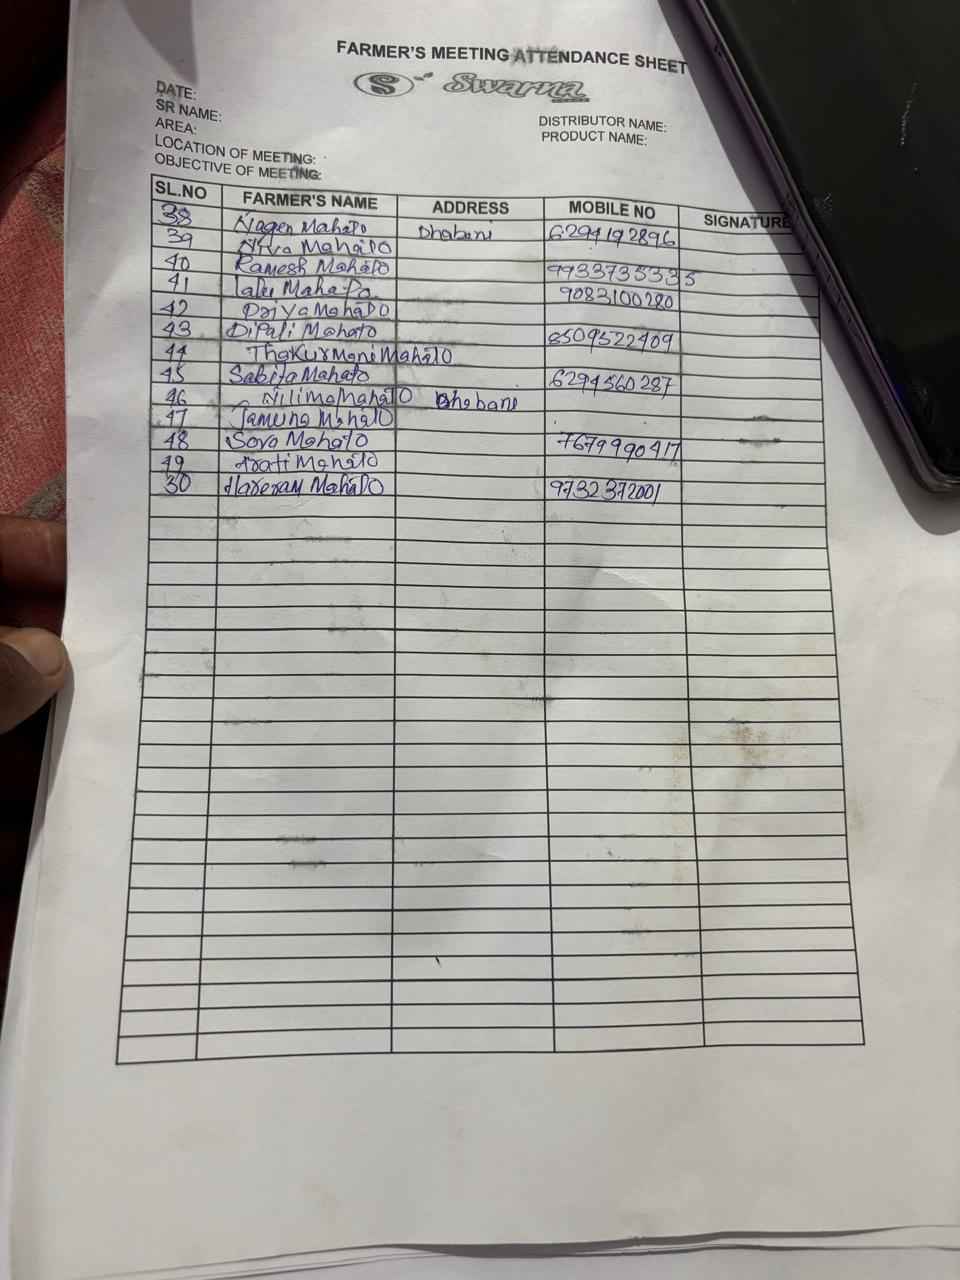 FARMER'S MEETING ATTENDANCE SHEET
S Swarna
DATE:
SR NAME:
AREA:
LOCATION OF MEETING:
OBJECTIVE OF MEETING:
DISTRIBUTOR NAME:
PRODUCT NAME:
SL.NO FARMER'S NAME ADDRESS MOBILE NO SIGNATURE
38 Nagen Mahato Dhabani 6294192896
39 Niva Mahato
40 Ramesh Mahato 9933735335
41 Lalu Mahato 9083100280
42 Priya Mahato
43 Dipali Mahato 8509522409
44 Thakurmani Mahato
45 Sabita Mahato 6294560287
46 Nilima Mahato Dhabani
47 Jamuna Mahato
48 Sova Mahato 7679990417
49 Arati Mahato
50 Hareram Mahato 9732372001